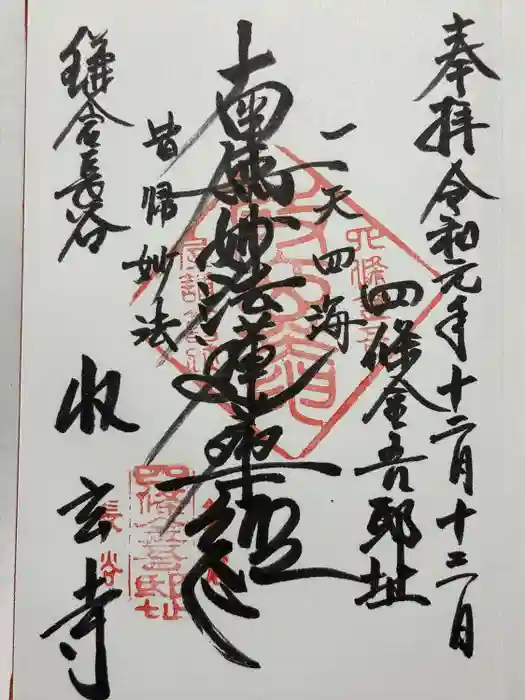 奉拝 令和元年十二月十二日
四條金吾邸址
一天四海
南無妙法蓮華経
皆帰妙法
鎌倉長谷
収玄寺
四條金吾邸址
長谷